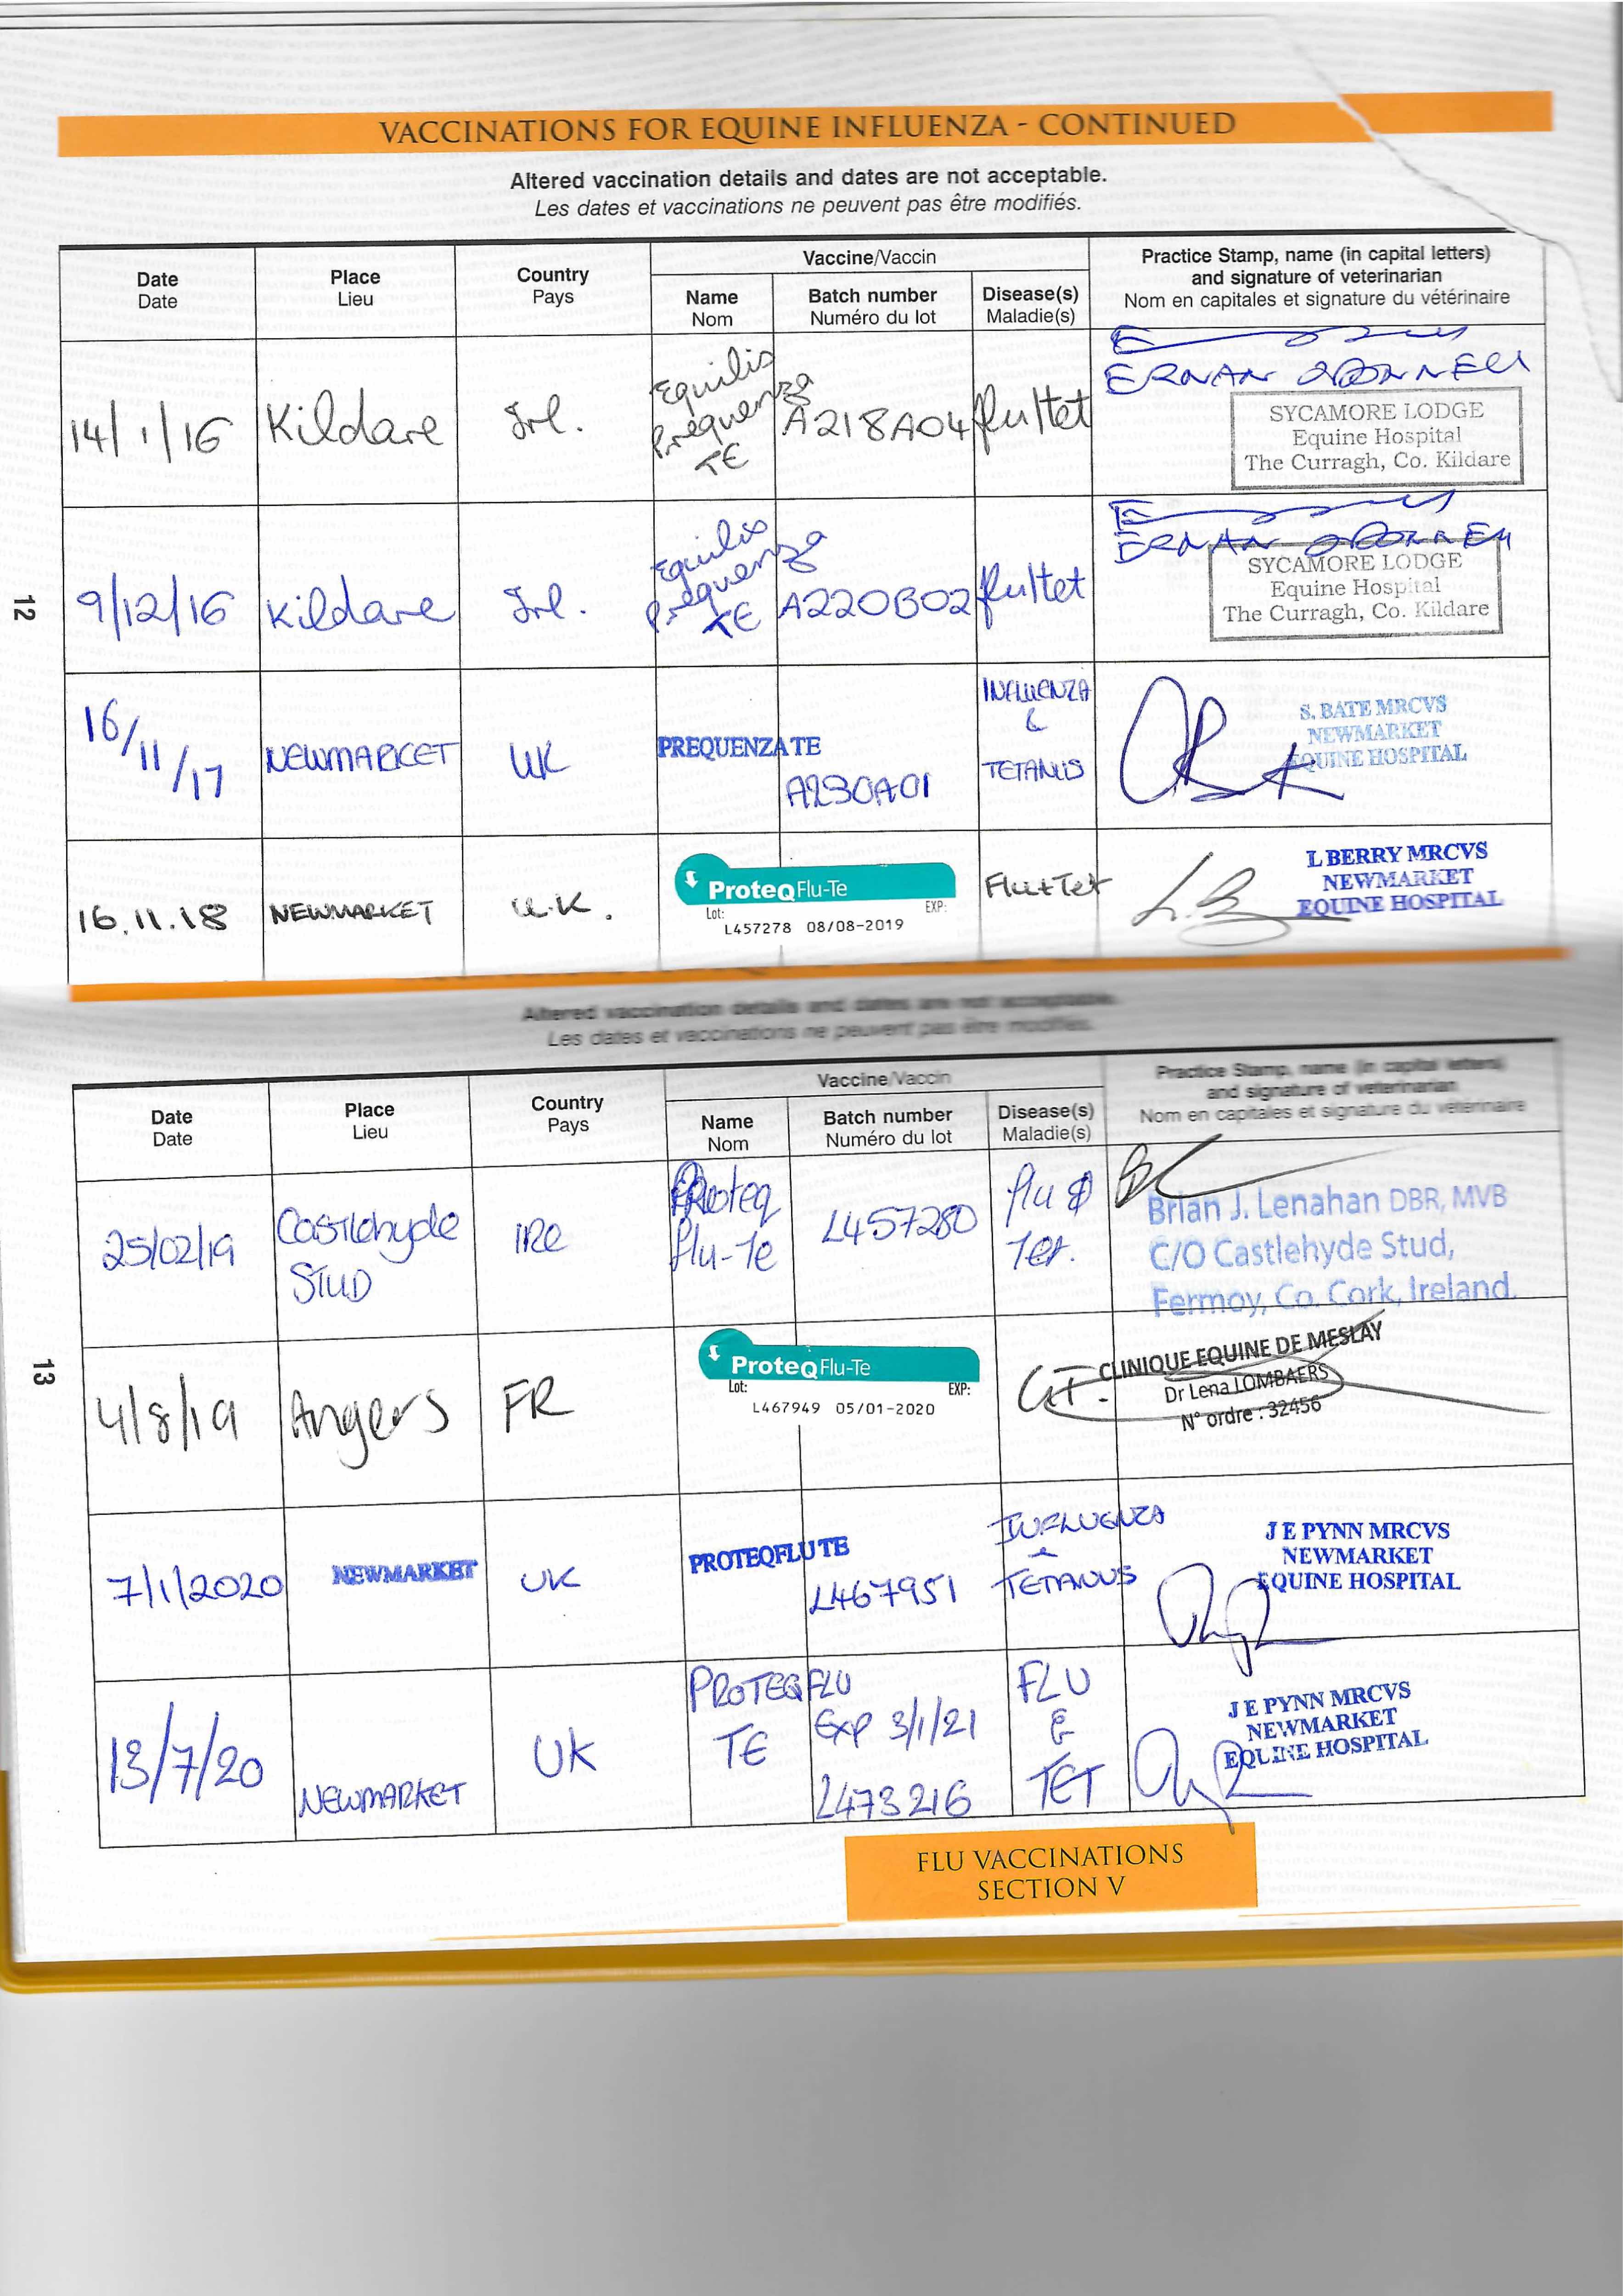 VACCINATIONS FOR EQUINE INFLUENZA - CONTINUED
Altered vaccination details and dates are not acceptable.
Les dates et vaccinations ne peuvent pas être modifiés.
Date
Date
Place
Lieu
Country
Pays
Vaccine/Vaccin
Name
Nom
Batch number
Numéro du lot
Disease(s)
Maladie(s)
Practice Stamp, name (in capital letters)
and signature of veterinarian
Nom en capitales et signature du vétérinaire
14/1/16
Kildare
Irl.
Equilis
Prequenza
TE
A218A04
flu/tet
ERNAN ODONNELL
SYCAMORE LODGE
Equine Hospital
The Curragh, Co. Kildare
9/12/16
Kildare
Irl.
Equilis
Prequenza
TE
A220B02
flu/tet
ERNAN ODONNELL
SYCAMORE LODGE
Equine Hospital
The Curragh, Co. Kildare
12
16/11/17
NEWMARKET
UK
PREQUENZA TE
A230A01
INFLUENZA
&
TETANUS
S. BATE MRCVS
NEWMARKET
EQUINE HOSPITAL
16.11.18
NEWMARKET
U.K.
ProteqFlu-Te
Lot:
EXP:
L457278 08/08-2019
Flu+Tet
L BERRY MRCVS
NEWMARKET
EQUINE HOSPITAL
Altered vaccination details and dates are not acceptable.
Les dates et vaccinations ne peuvent pas être modifiés.
Date
Date
Place
Lieu
Country
Pays
Vaccine/Vaccin
Name
Nom
Batch number
Numéro du lot
Disease(s)
Maladie(s)
Practice Stamp, name (in capital letters)
and signature of veterinarian
Nom en capitales et signature du vétérinaire
25/02/19
Castlehyde
STUD
IRE
Proteq
flu-Te
L457280
flu &
Tet.
Brian J. Lenahan DBR, MVB
C/O Castlehyde Stud,
Fermoy, Co. Cork, Ireland.
13
4/8/19
Angers
FR
ProteqFlu-Te
Lot:
EXP:
L467949 05/01-2020
CLINIQUE EQUINE DE MESLAY
Dr Lena LOMBAERS
N° ordre : 32456
7/1/2020
NEWMARKET
UK
PROTEQFLU TE
L467951
INFLUENZA
&
TETANUS
J E PYNN MRCVS
NEWMARKET
EQUINE HOSPITAL
13/7/20
NEWMARKET
UK
PROTEQFLU
TE
Exp 3/1/21
L473216
FLU
&
TET
J E PYNN MRCVS
NEWMARKET
EQUINE HOSPITAL
FLU VACCINATIONS
SECTION V